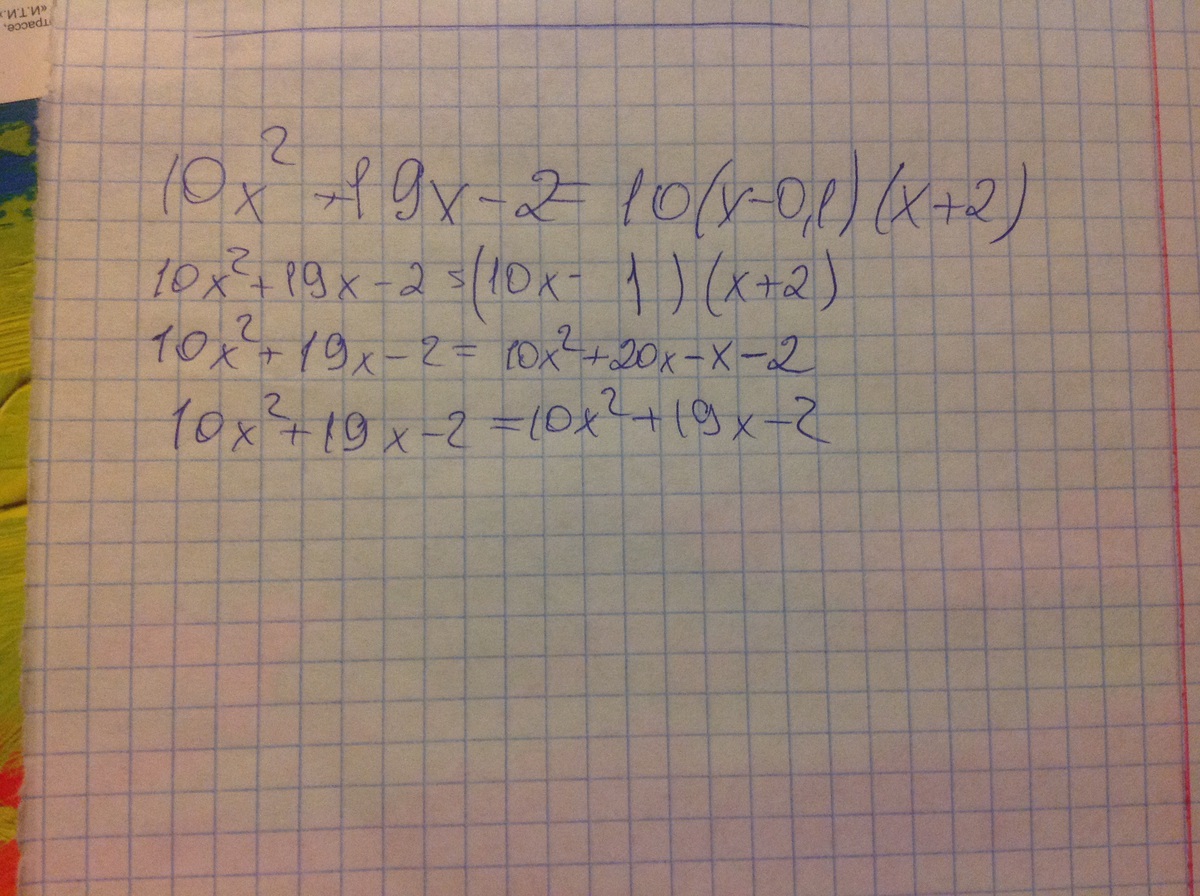 трассе,
«И.Т.И.»
10x² +19x-2= 10(x-0,1)(x+2)
10x²+19x-2=(10x- 1)(x+2)
10x²+19x-2= 10x²+20x-x-2
10x²+19x-2=10x²+19x-2